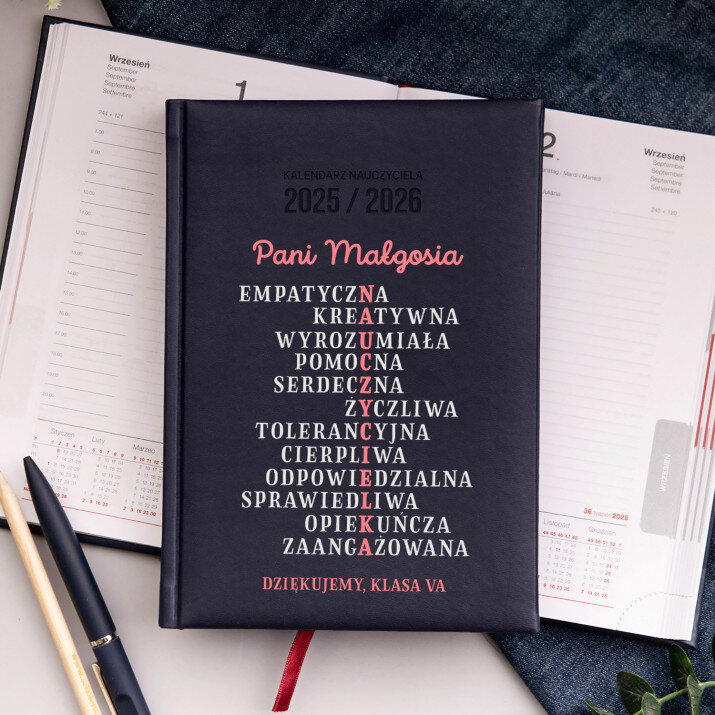 KALENDARZ NAUCZYCIELA
2025 / 2026
Pani Małgosia
EMPATYCZNA
KREATYWNA
WYROZUMIAŁA
POMOCNA
SERDECZNA
ŻYCZLIWA
TOLERANCYJNA
CIERPLIWA
ODPOWIEDZIALNA
SPRAWIEDLIWA
OPIEKUŃCZA
ZAANGAŻOWANA
DZIĘKUJEMY, KLASA VA
Wrzesień
September
September
Septembre
Settembre
1
244 + 121
7.00
8.00
9.00
10.00
11.00
12.00
13.00
14.00
15.00
16.00
17.00
18.00
19.00
20.00
Styczeń
Luty
Marzec
2.
Wrzesień
September
September
Septembre
Settembre
245 + 120
WRZESIEŃ
36 tydzień 2025
Listopad
Grudzień